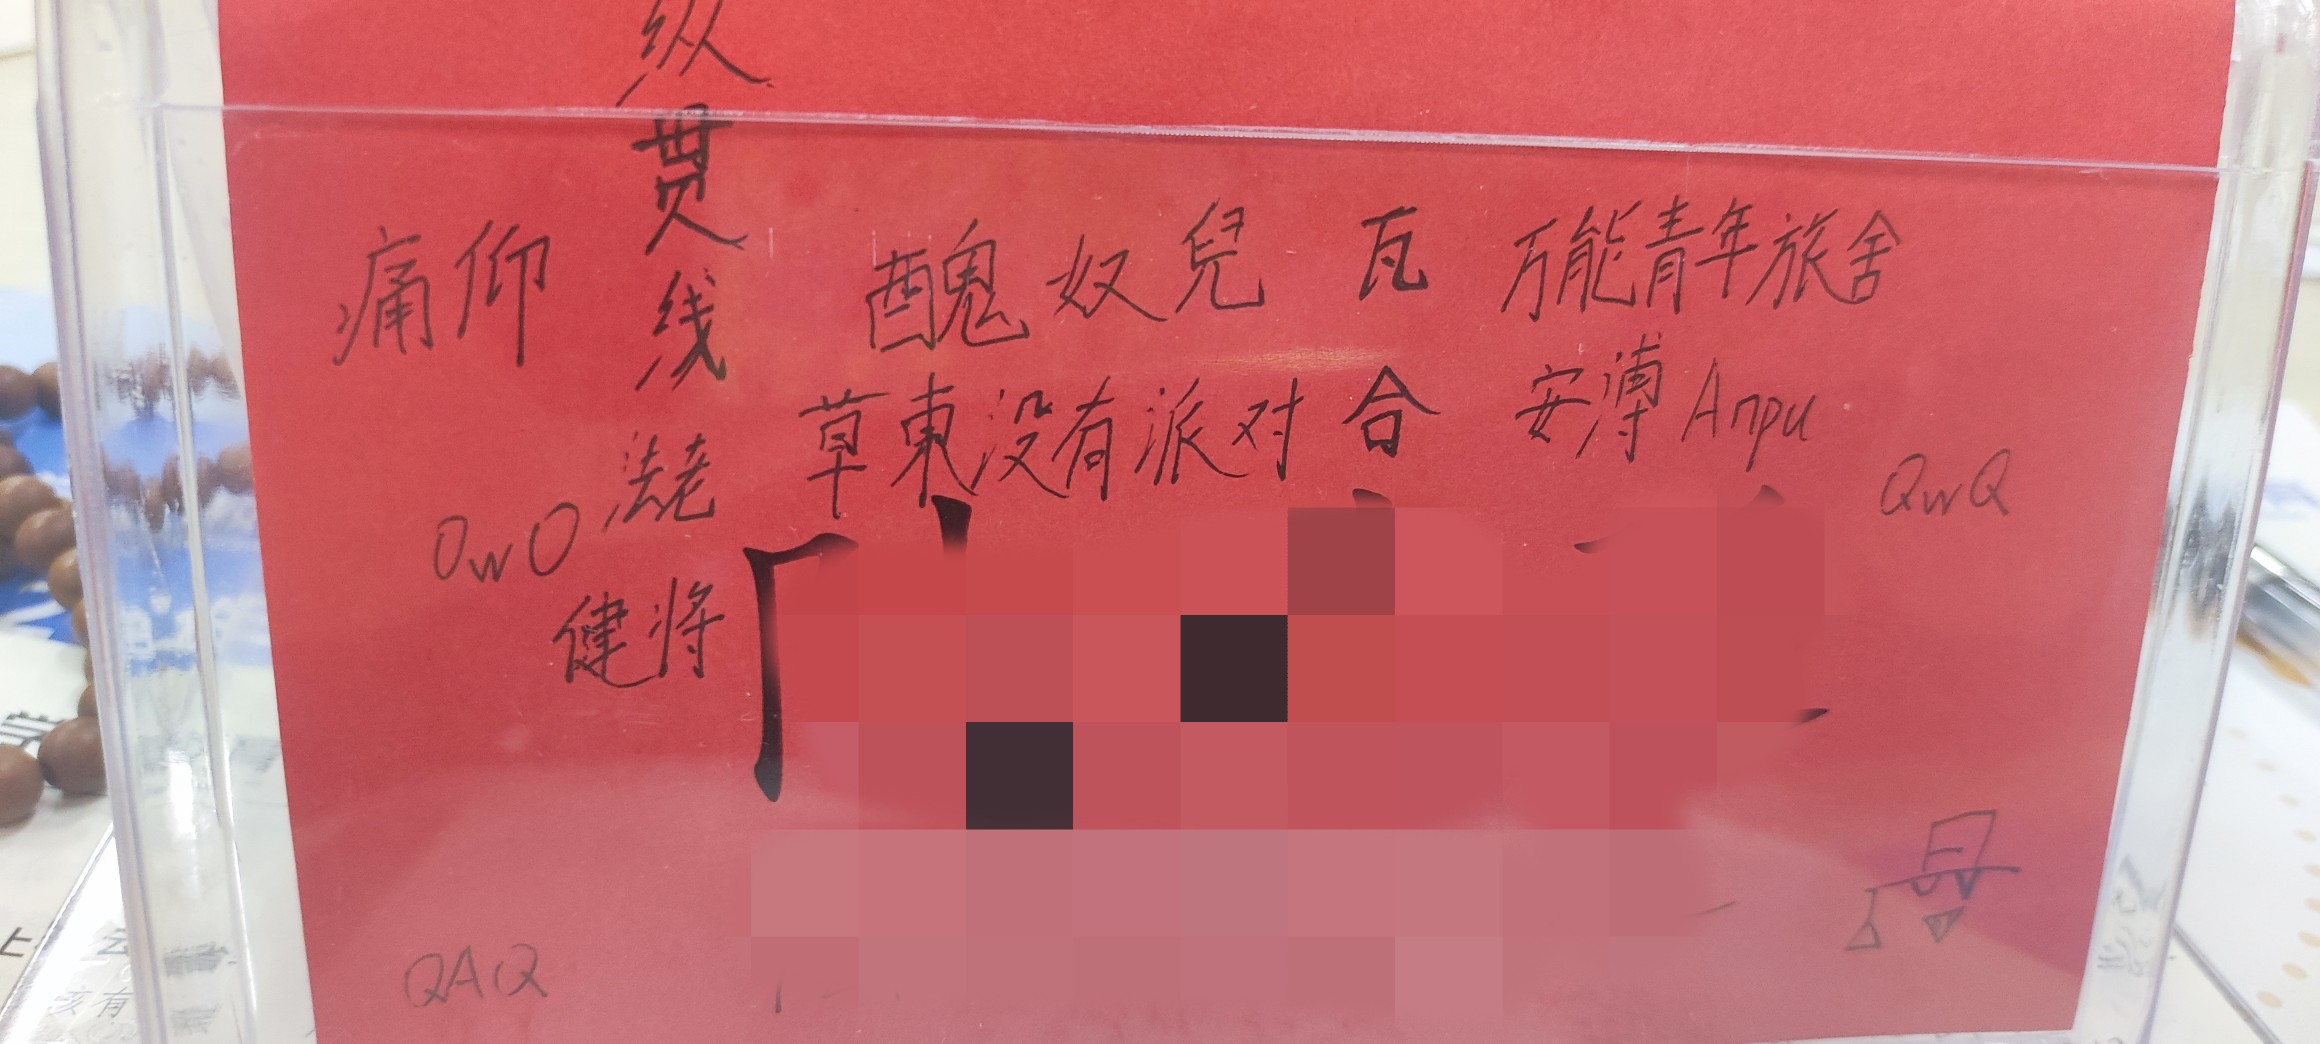 纵贯线
痛仰
醜奴兒
瓦合
万能青年旅舍
草東没有派对
安溥 Anpu
法老
OwO
QwQ
健将
QAQ